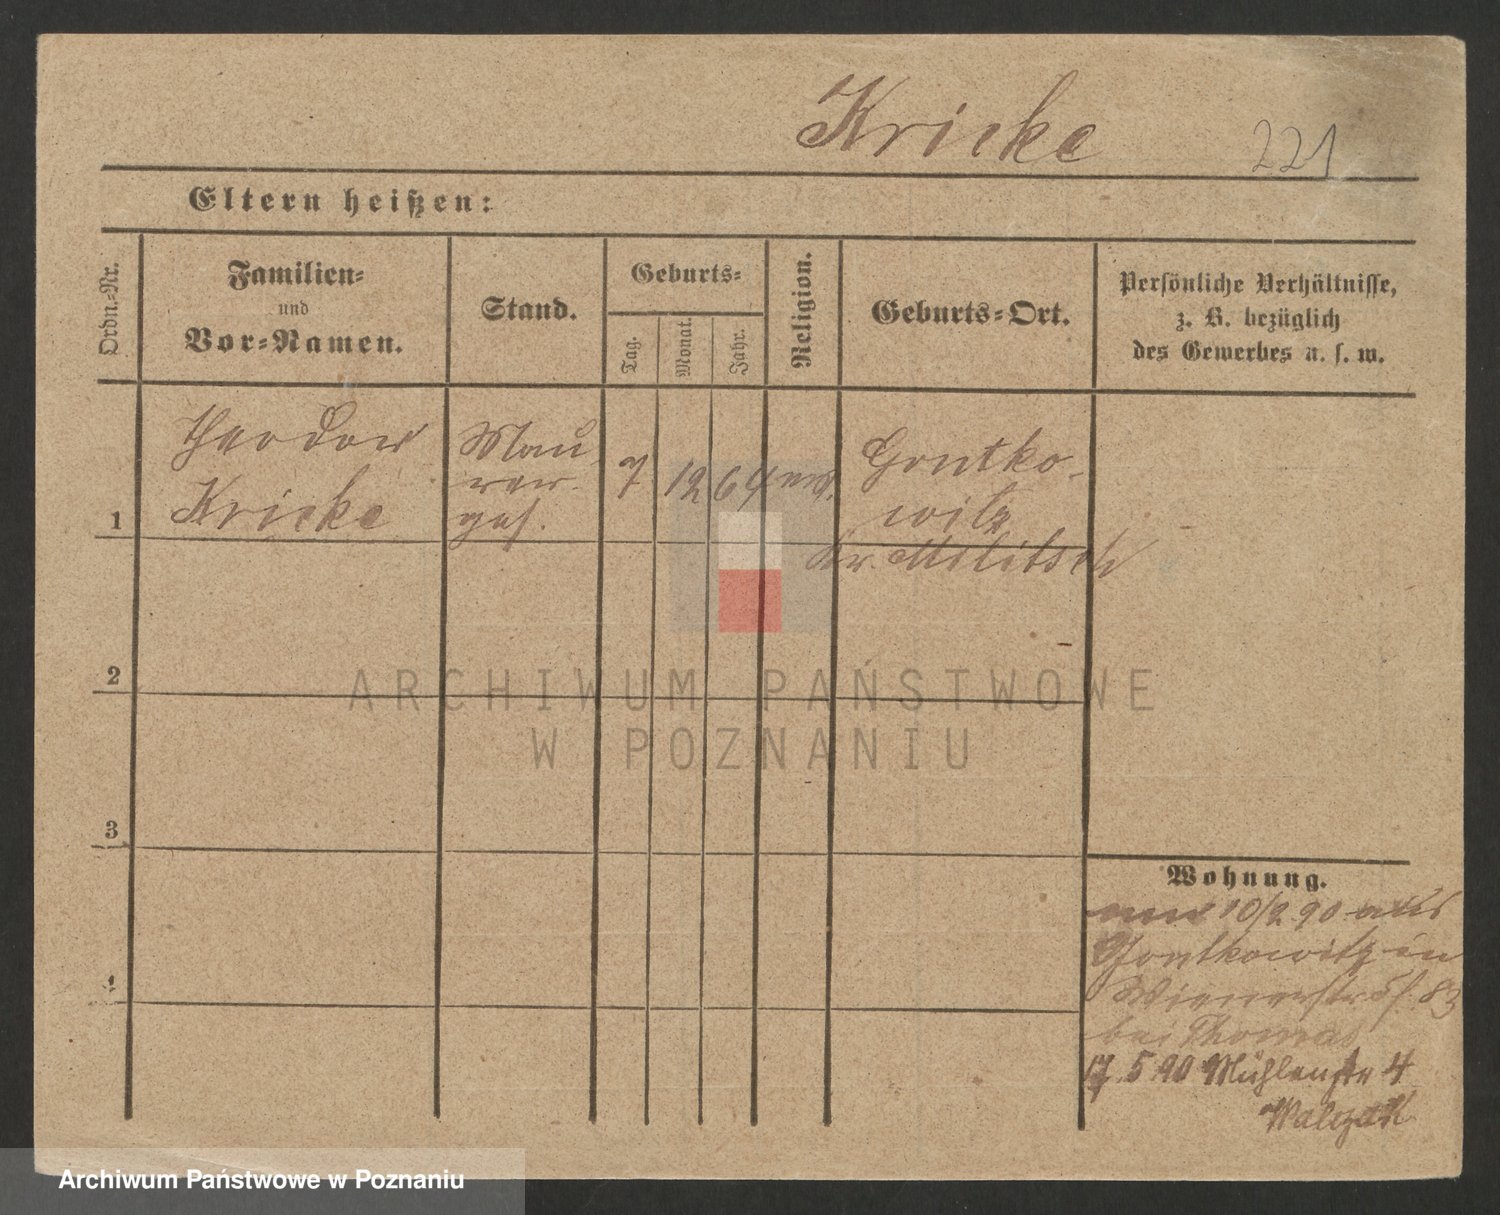 Kricke
221
Eltern heißen:
Ordn.-Nr.
Familien-
und
Vor-Namen.
Stand.
Geburts-
Tag.
Monat.
Jahr.
Religion.
Geburts-Ort.
Persönliche Verhältnisse,
z. B. bezüglich
des Gewerbes u. s. w.
Theodor
Kricke
Mau
rer
ges.
7
12
64
ev.
Gontko-
witz
Kr. Militsch
1
2
3
4
ARCHIWUM PAŃSTWOWE
W POZNANIU
Wohnung.
10/2 90 aus
Gontkowitz in
Wienerstraß. 83
bei Thomas
17.5 90 Mühlenstr 4
Walczak
Archiwum Państwowe w Poznaniu